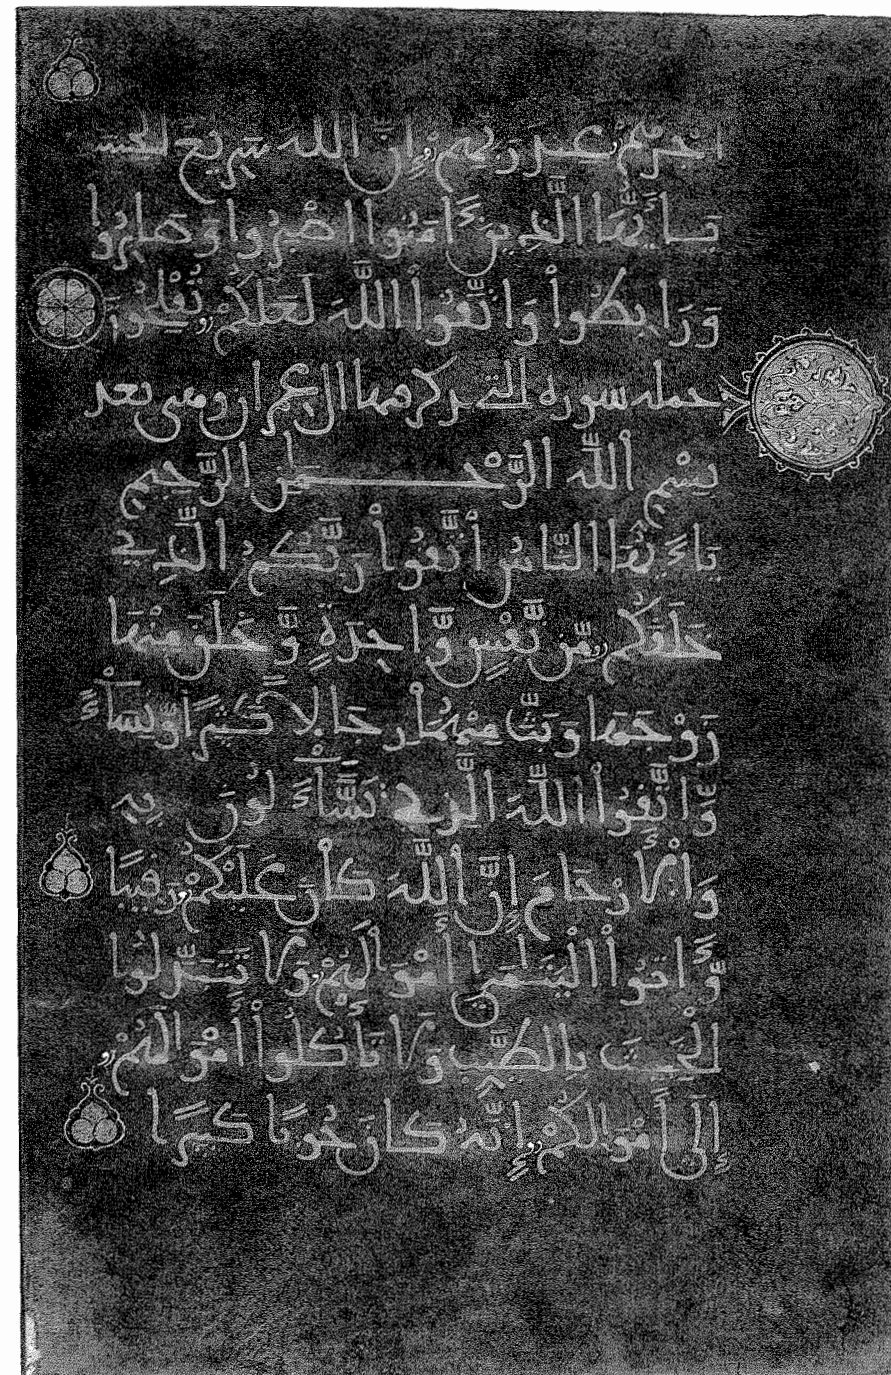 أَجْرُهُمْ عِندَ رَبِّهِمْ إِنَّ اللَّهَ سَرِيعُ الْحِسَـ
يَـٰأَيُّهَا الَّذِينَ ءَامَنُوا اصْبِرُوا وَصَابِرُوا
وَرَابِطُوا وَاتَّقُوا اللَّهَ لَعَلَّكُمْ تُفْلِحُونَ
سورة التي يذكر فيها ال عمران
بِسْمِ اللَّهِ الرَّحْمَـٰنِ الرَّحِيمِ
يَـٰأَيُّهَا النَّاسُ اتَّقُوا رَبَّكُمُ الَّذِي
خَلَقَكُم مِّن نَّفْسٍ وَّاحِدَةٍ وَّخَلَقَ مِنْهَا
زَوْجَهَا وَبَثَّ مِنْهُمَا رِجَالًا كَثِيرًا وَّنِسَاءً
وَّاتَّقُوا اللَّهَ الَّذِي تَسَّاءَلُونَ بِهِ
وَالْأَرْحَامَ إِنَّ اللَّهَ كَانَ عَلَيْكُمْ رَقِيبًا
وَّءَاتُوا الْيَتَـٰمَىٰ أَمْوَٰلَهُمْ وَلَا تَتَبَدَّلُوا
الْخَبِيثَ بِالطَّيِّبِ وَلَا تَأْكُلُوا أَمْوَٰلَهُمْ
إِلَىٰ أَمْوَالِكُمْ إِنَّهُ كَانَ حُوبًا كَبِيرًا